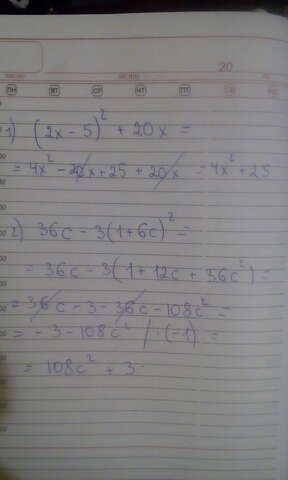 20
ПН ВТ СР ЧТ ПТ
1) (2x - 5)² + 20x =
= 4x² - 20x + 25 + 20x = 4x² + 25
2) 36c - 3(1+6c)² =
= 36c - 3(1 + 12c + 36c²) =
= 36c - 3 - 36c - 108c² =
= - 3 - 108c² / · (-1) =
= 108c² + 3